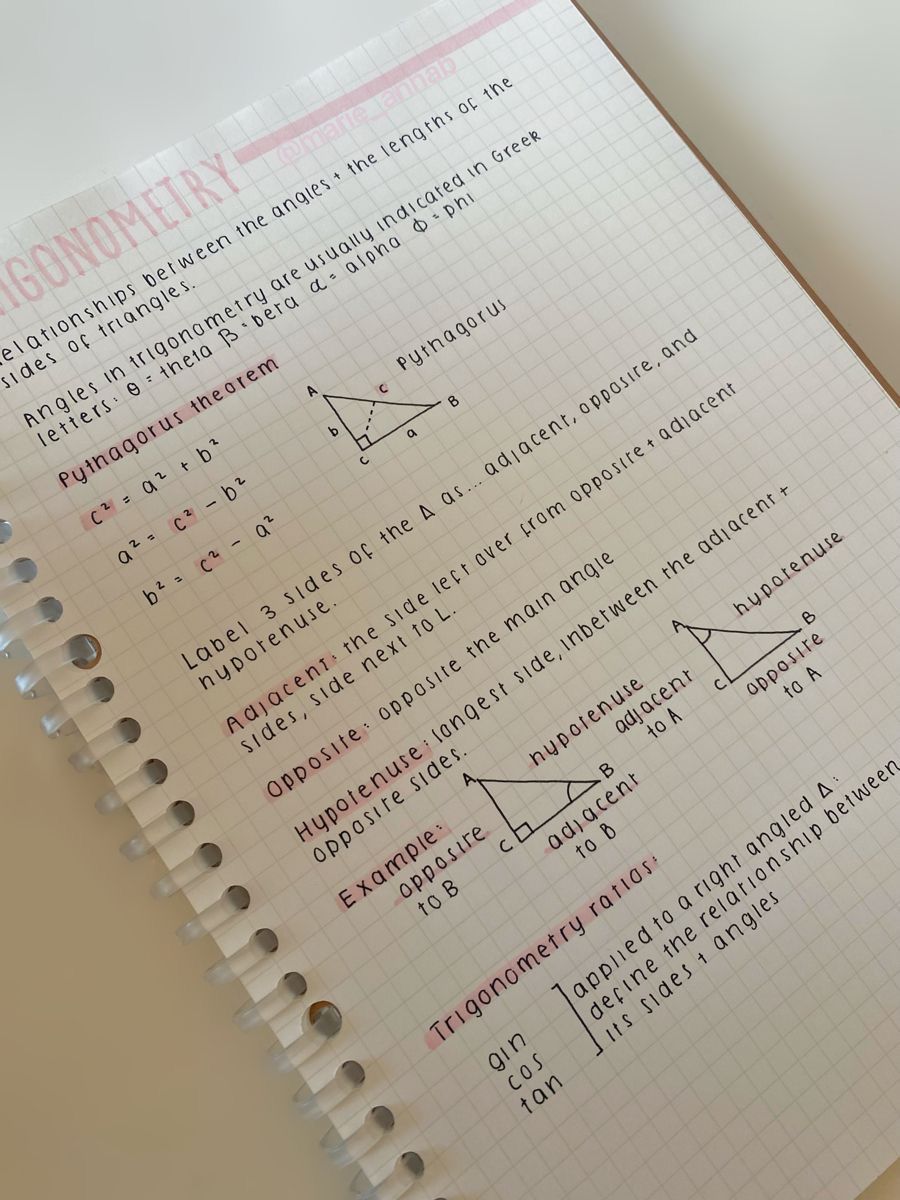 TRIGONOMETRY
@marie_annab
relationships between the angles + the lengths of the
sides of triangles.
Angles in trigonometry are usually indicated in Greek
letters: θ = theta β = beta α = alpha Φ = phi
Pythagorus theorem
c² = a² + b²
a² = c² - b²
b² = c² - a²
Pythagorus
A
c
B
b
a
C
Label 3 sides of the Δ as... adjacent, opposite, and
hypotenuse.
Adjacent: the side left over from opposite + adjacent
sides, side next to L.
Opposite: opposite the main angle
Hypotenuse: longest side, inbetween the adjacent +
opposite sides.
Example:
hypotenuse
A
B
C
opposite
to B
adjacent
to B
hypotenuse
A
B
C
adjacent
to A
opposite
to A
Trigonometry ratios:
gin
cos
tan
applied to a right angled Δ:
define the relationship between
its sides + angles